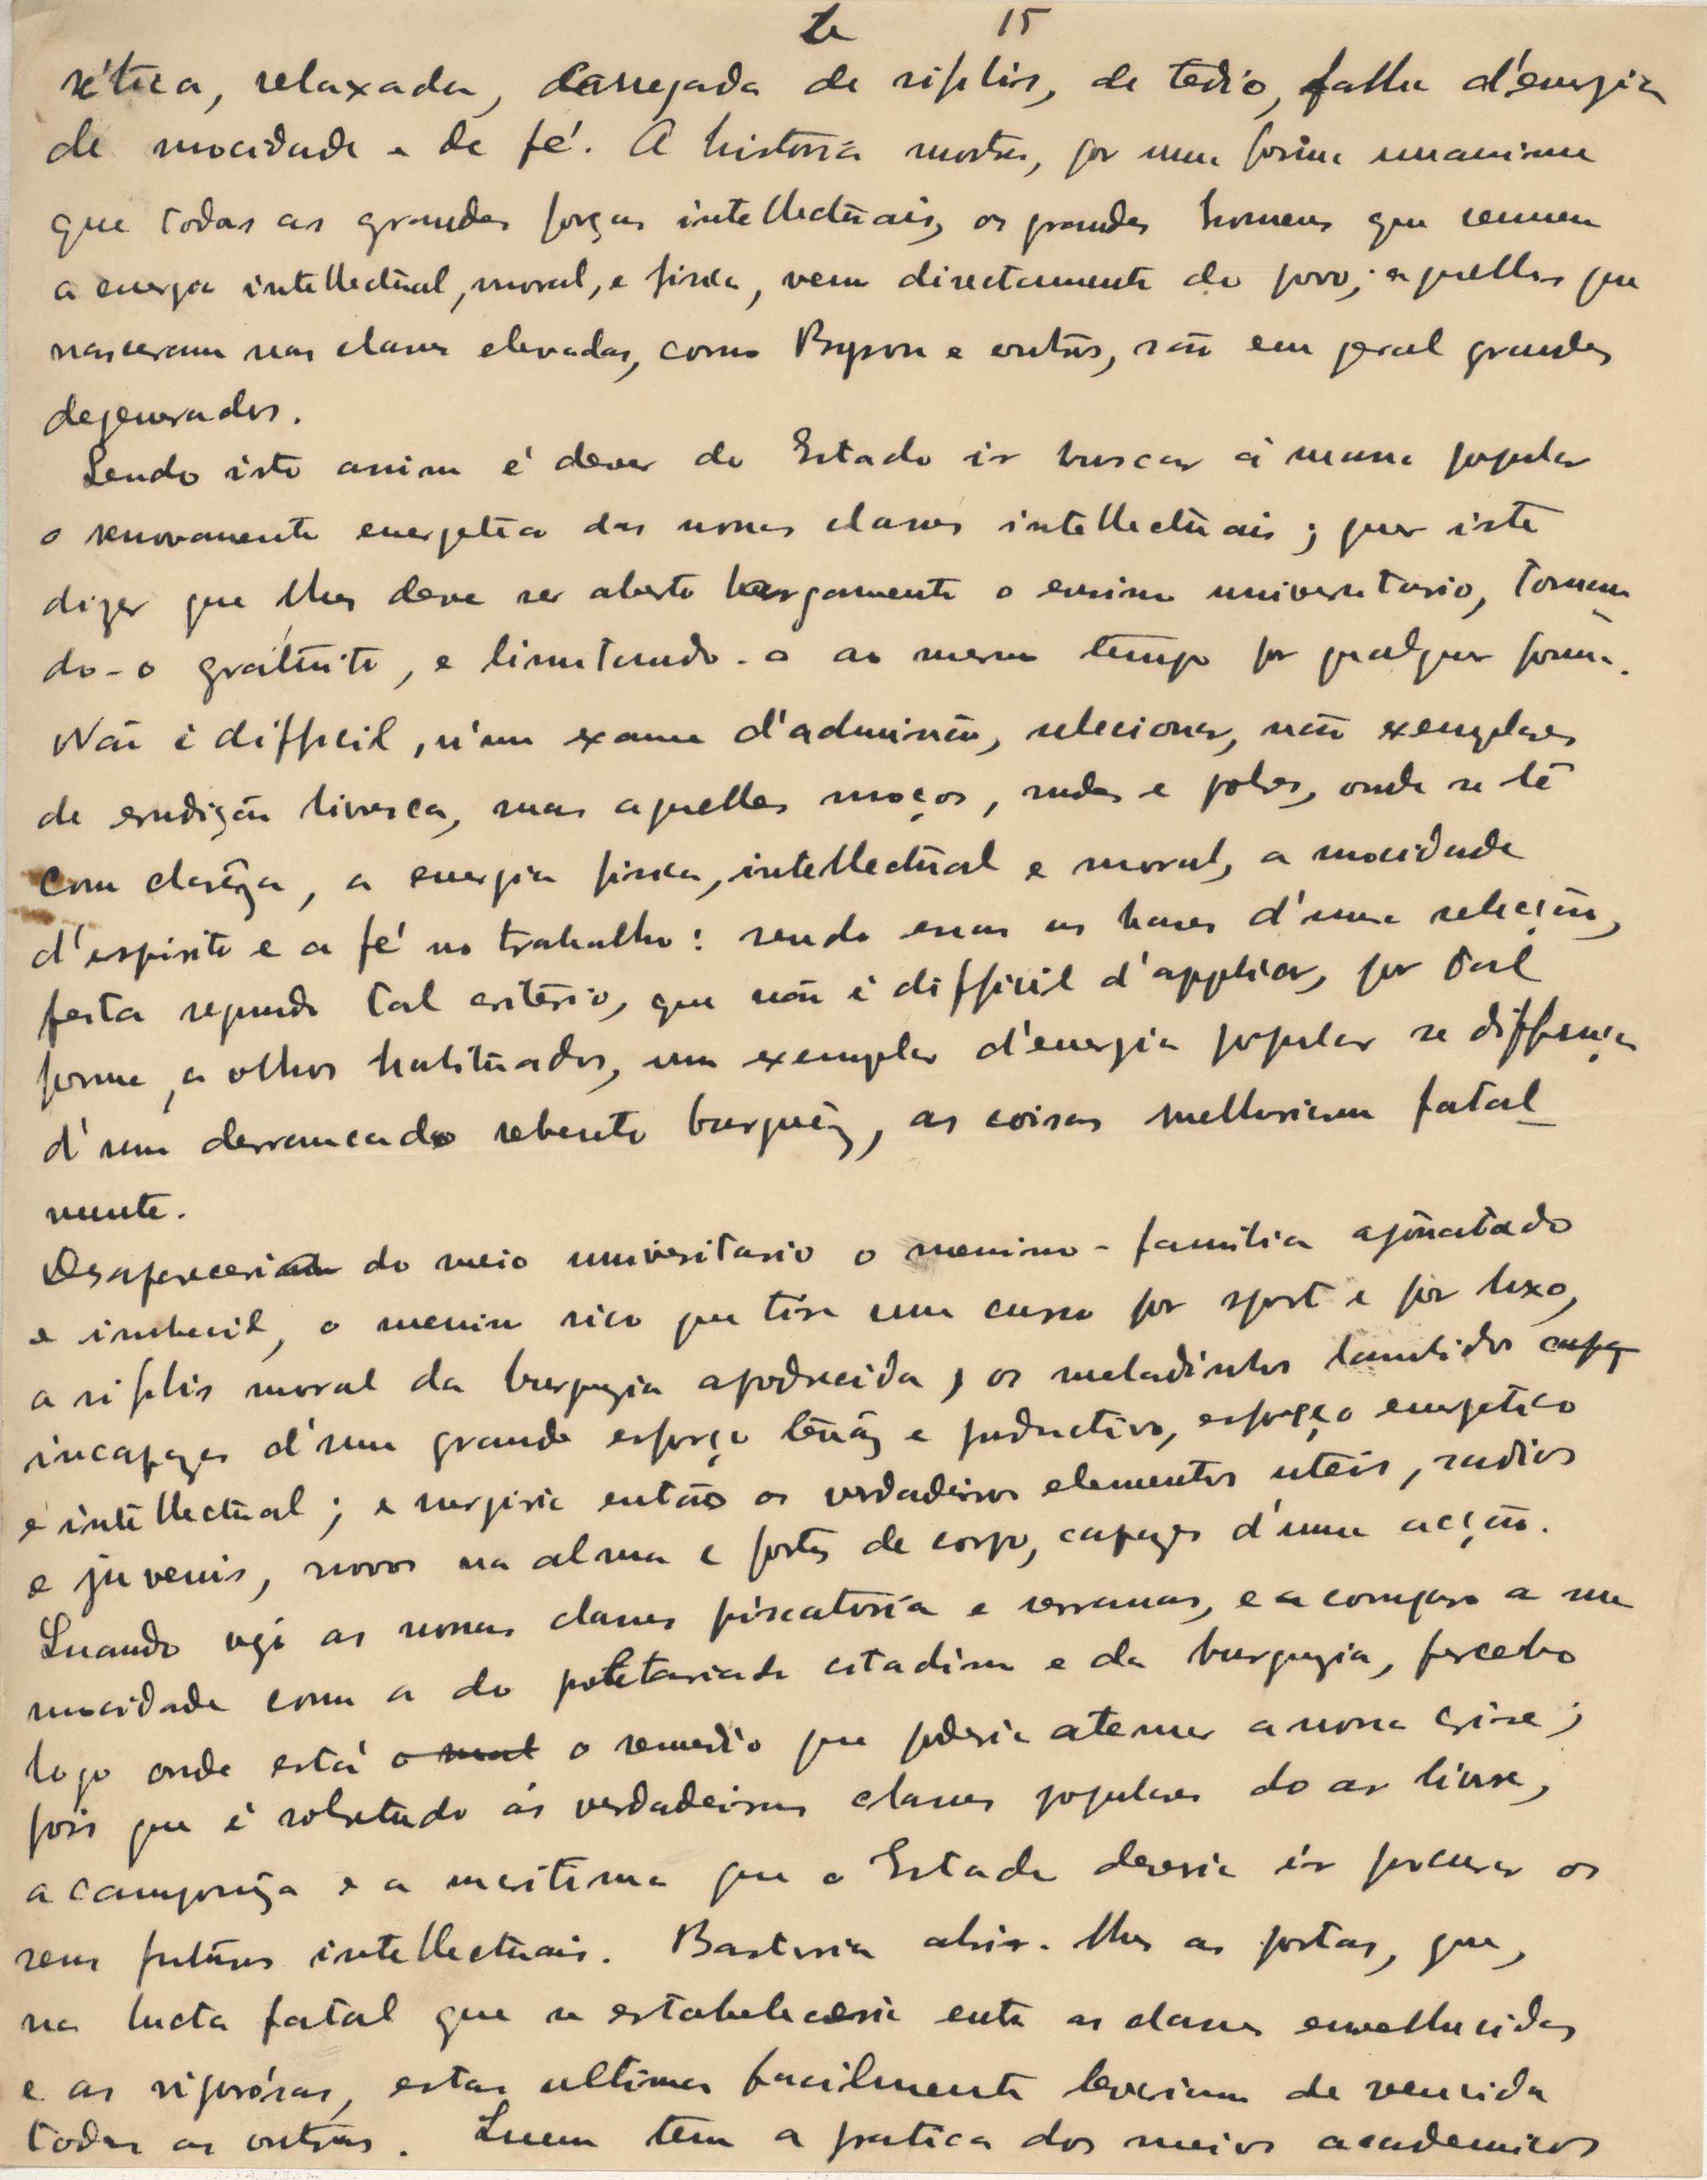 15
rética, relaxada, carregada de siphlis, de tedio, falha d'energia
de mocidade e de fé. A historia mostra, por uma forma unanime
que todas as grandes forças intellectuais, os grandes homens que reunem
a energia intellectual, moral, e fisica, vem directamente do povo; aquelles que
nasceram nas classes elevadas, como Byron e outros, são em geral grandes
degenerados.
Sendo isto assim é dever do Estado ir buscar á massa popular
o renovamento energetico das nossas classes intellectuais; quer isto
dizer que lhes deve ser aberto largamente o ensino universitario, tornan
do-o gratuito, e limitando-o ao mesmo tempo por qualquer forma.
Não é difficil, n'um exame d'admissão, selecionar, não exemplares
de erudição livresca, mas aquelles moços, rudes e pobres, onde se lê
com clarêza, a energia fisica, intellectual e moral, a mocidade
d'espirito e a fé no trabalho: sendo essas as bases d'uma seleção,
feita segundo tal criterio, que não é difficil d'applicar, por tal
forma, a olhos habituados, um exemplar d'energia popular se differença
d'um derrancado rebento burguêz, as coisas melhoriam fatal_
mente.
Desapareceria do meio universitario o menino-familia ajanotado
e imbecil, o menino rico que tira um curso por sport e por luxo,
a siphlis moral da burguezia apodrecida, os meladinhos lambidos
incapazes d'um grande esforço tenáz e productivo, esforço energetico
e intellectual; e surgiria então os verdadeiros elementos uteis, sadios
e juvenis, novos na alma e fortes de corpo, capazes d'uma acção.
Quando vejo as nossas classes piscatoria e serranas, e a comparo a sua
mocidade com a do proletariado citadino e da burguezia, percebo
logo onde está o mal o remedio que poderia atenuar a nossa crise;
pois que é sobretudo ás verdadeiras classes populares do ar livre,
a camponêza e a maritima que o Estado deveria ir procurar os
seus futuros intellectuais. Bastaria abrir-lhes as portas, que,
na lucta fatal que se estabeleceria entre as classes envelhecidas
e as vigorósas, estas ultimas facilmente levariam de vencida
todas as outras. Quem tem a pratica dos meios academicos